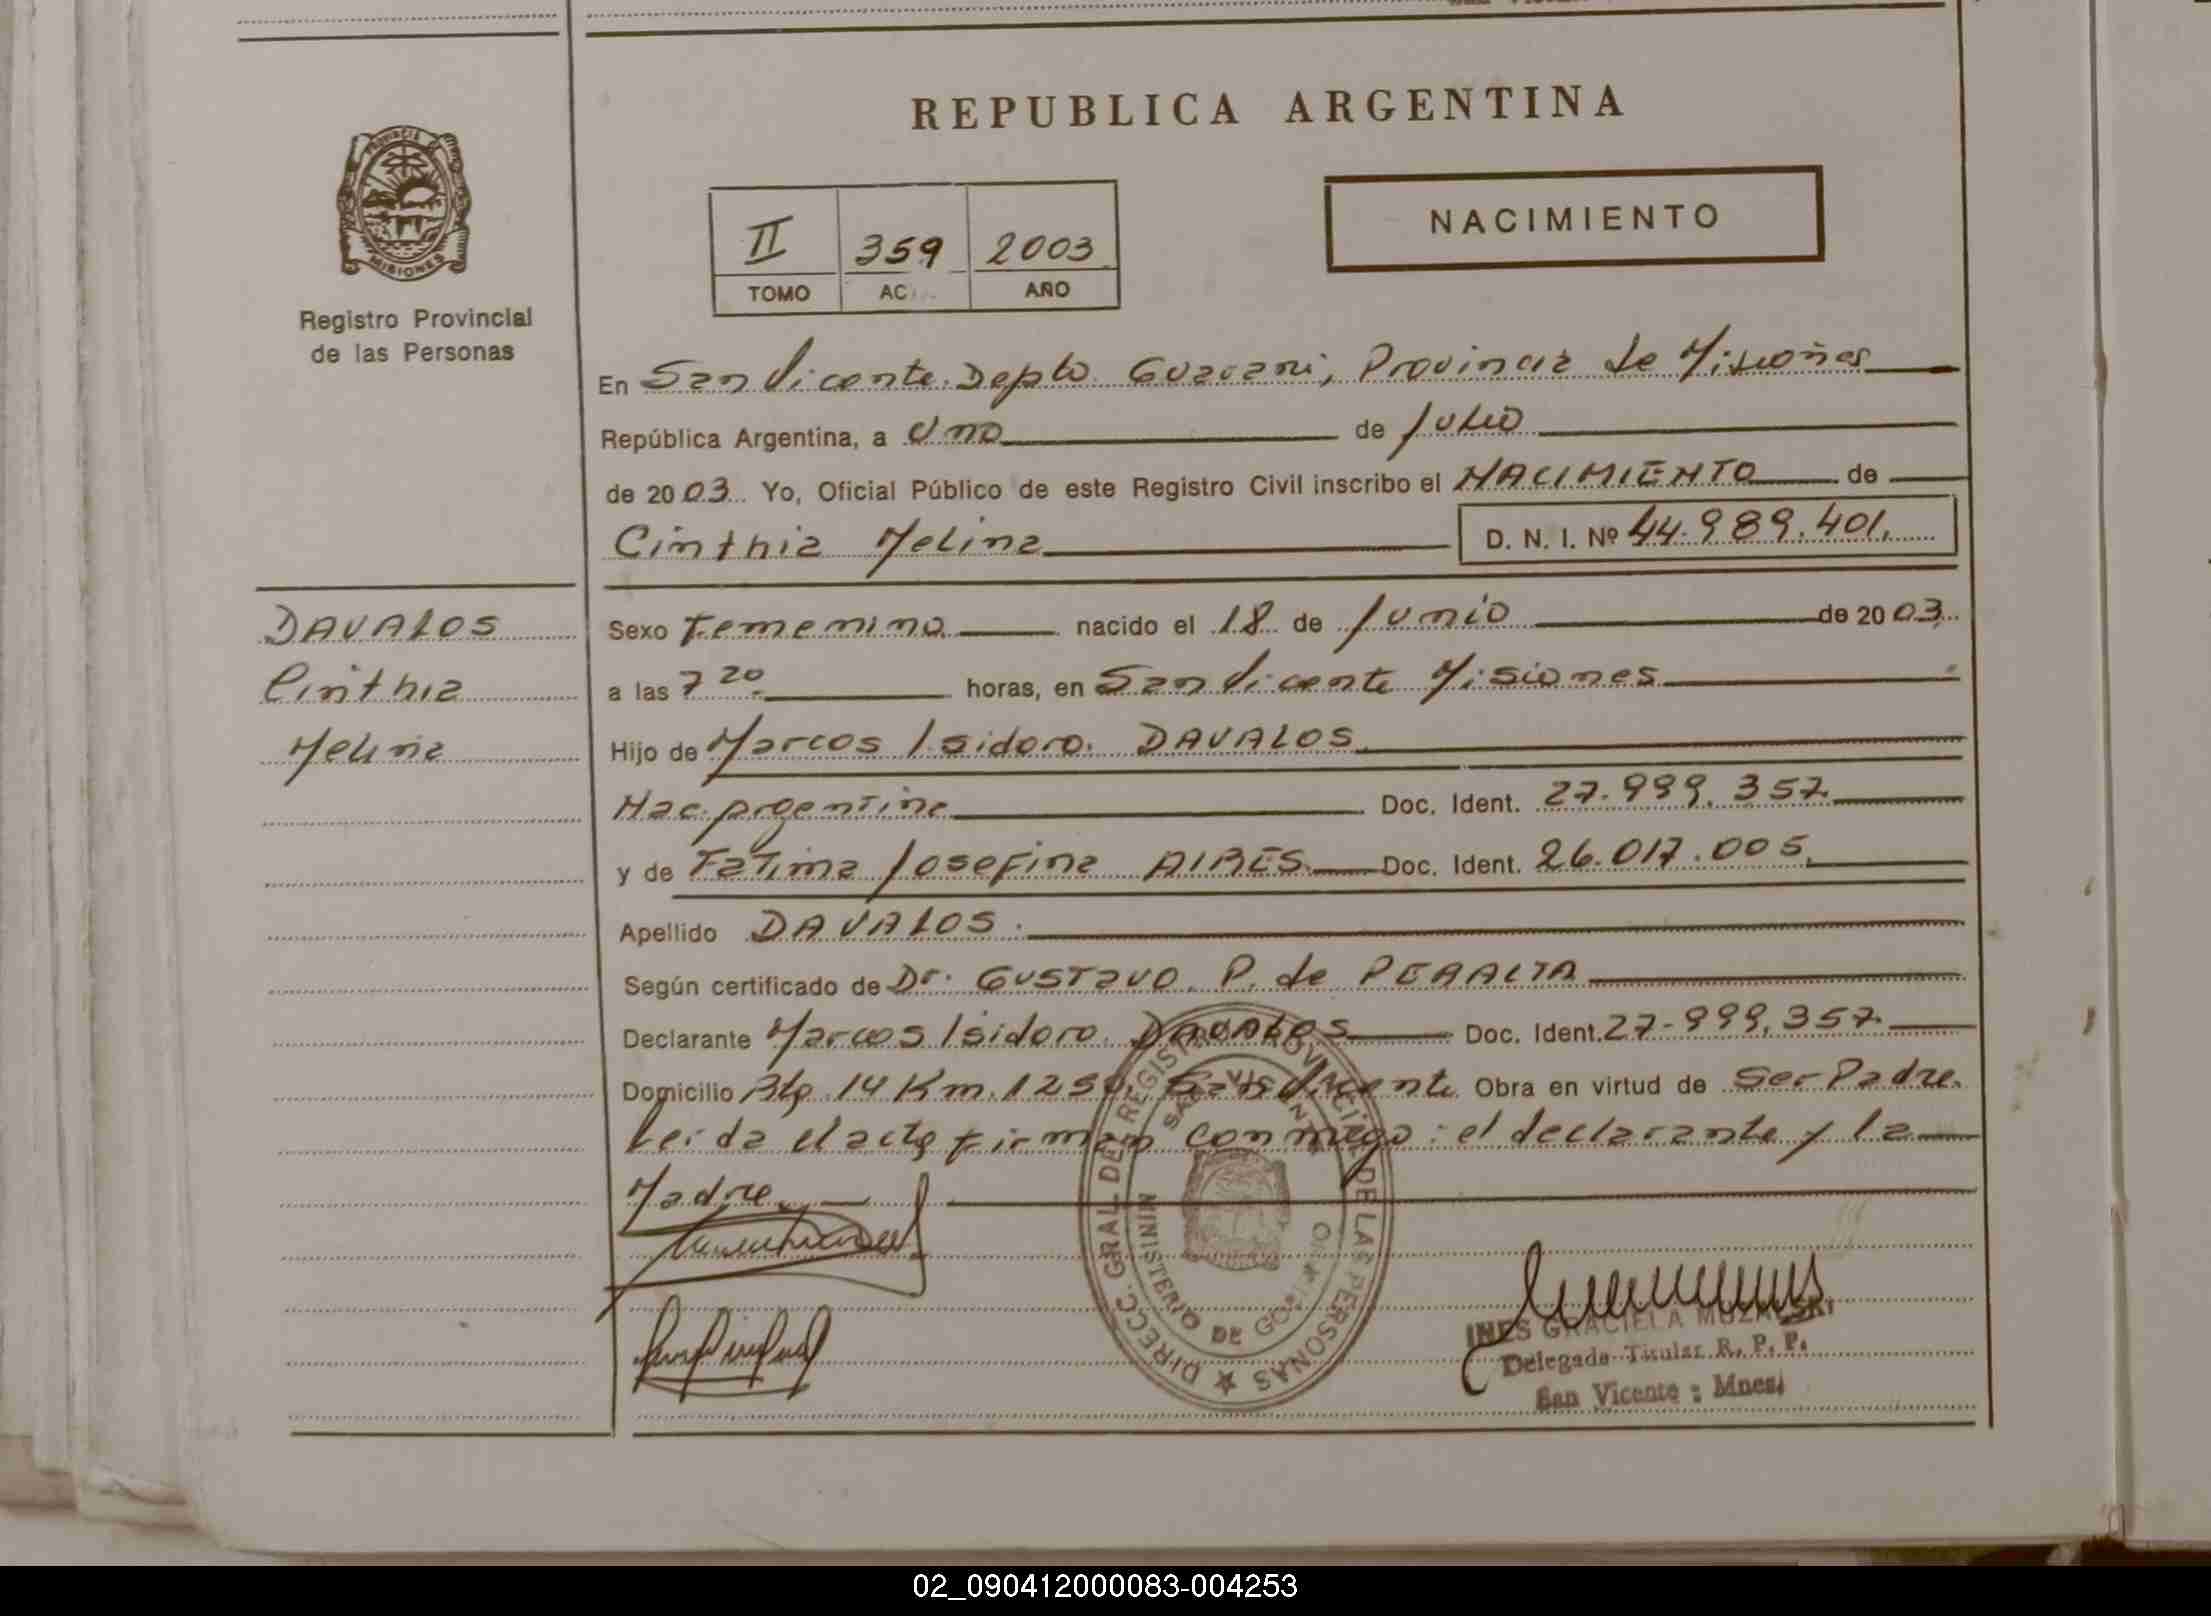 REPUBLICA ARGENTINA
PROVINCIA
MISIONES
Registro Provincial
de las Personas
II 359 2003
TOMO AC AÑO
NACIMIENTO
En San Vicente. Depto. Guarani, Provincia de Misiones
República Argentina, a Uno de Julio
de 2003. Yo, Oficial Público de este Registro Civil inscribo el NACIMIENTO de
Cinthia Melina D. N. I. Nº 44.989.401.
DAVALOS
Cinthia
Melina
Sexo Femenino nacido el 18 de Junio de 2003.
a las 7 20 horas, en San Vicente Misiones
Hijo de Marcos Isidoro. DAVALOS
Nac. argentina Doc. Ident. 27.999.357.
y de Fatima Josefina AIRES. Doc. Ident. 26.017.005.
Apellido DAVALOS.
Según certificado de Dr. Gustavo. P. de PERALTA
Declarante Marcos Isidoro. DAVALOS Doc. Ident. 27.999.357.
Domicilio Rta. 14 Km. 1250. San Vicente Obra en virtud de Ser Padre.
Leida el acta firman conmigo: el declarante y la
Madre.
DIRECC. GRAL DEL REGISTRO PROVINCIAL DE LAS PERSONAS
SAN VICENTE
MINISTERIO DE GOBIERNO
INES GRACIELA
Delegada Titular R. P. P.
San Vicente : Mnes.
02_090412000083-004253